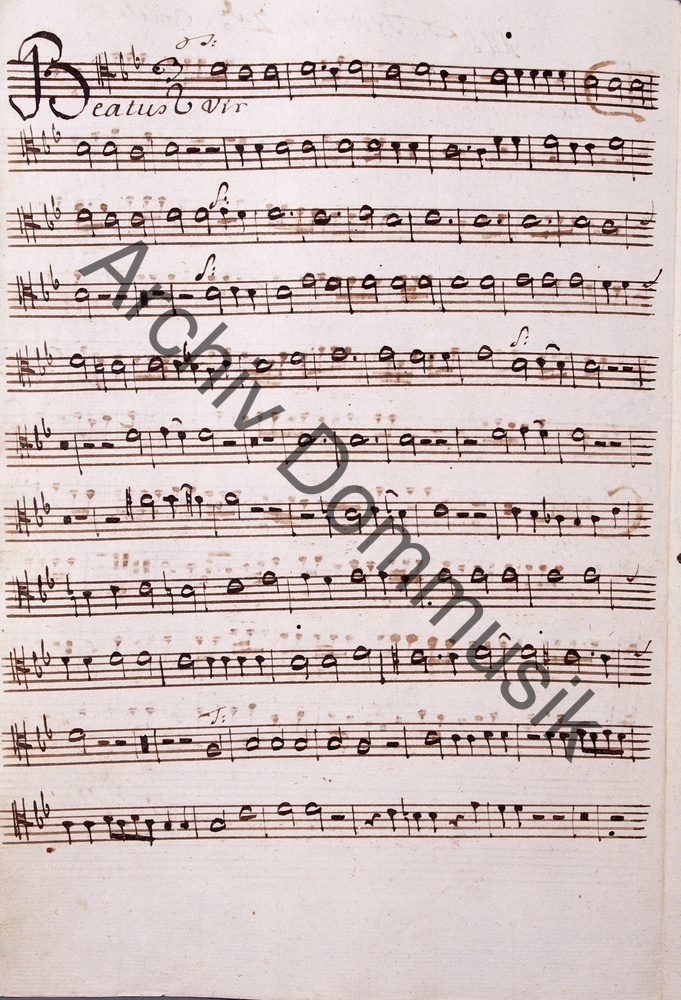 S:
Beatus Vir
S:
S:
S:
Archiv Dommusik